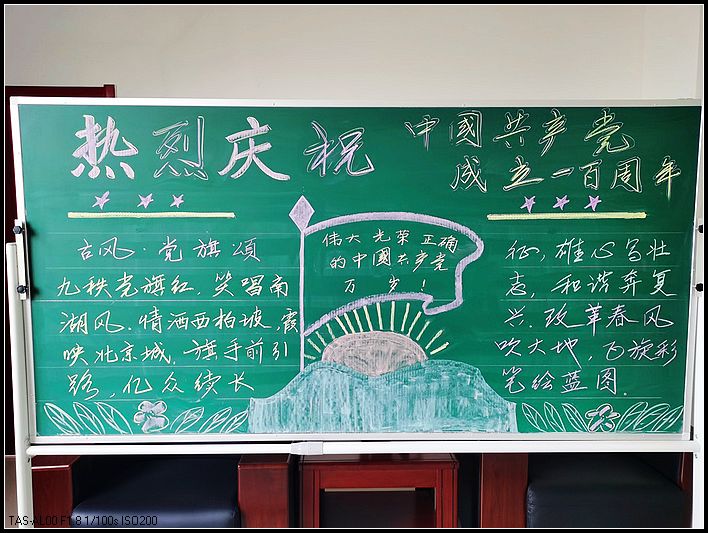 热烈庆祝
中國共产党
成立一百周年
古风·党旗颂
九秩党旗红,笑唱南
湖风.情洒西柏坡,霞
映北京城.旗手前引
路,亿众续长
伟大光荣正确
的中國共产党
万岁!
征,雄心写壮
志,和谐奔复
兴.改革春风
吹大地,飞旋彩
笔绘蓝图.
TAS-AL00 F1.8 1/100s ISO200